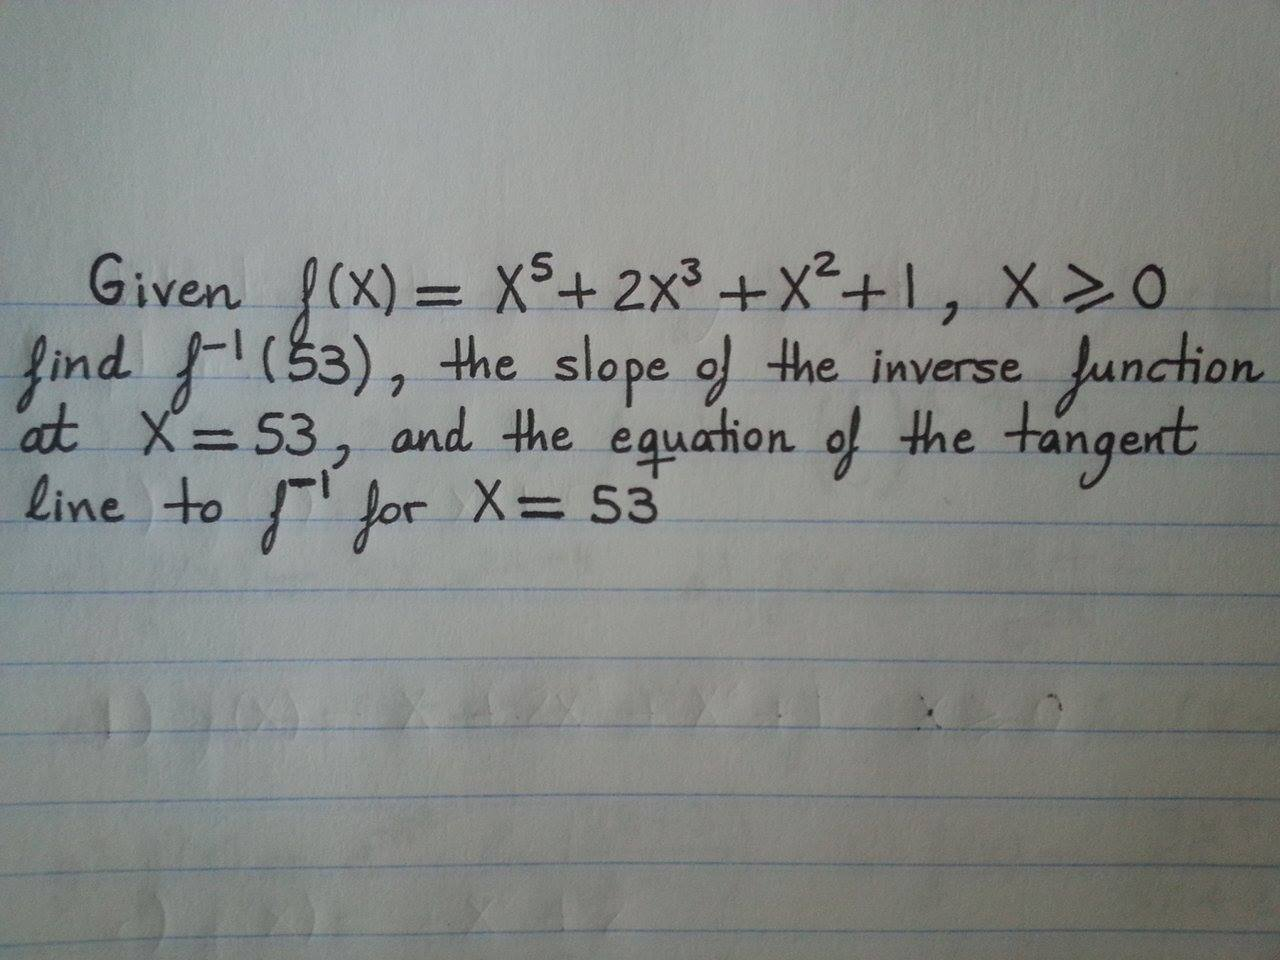 Given f(x) = x⁵ + 2x³ + x² + 1, x ⩾ 0
find f⁻¹(53), the slope of the inverse function
at x = 53, and the equation of the tangent
line to f⁻¹ for x = 53